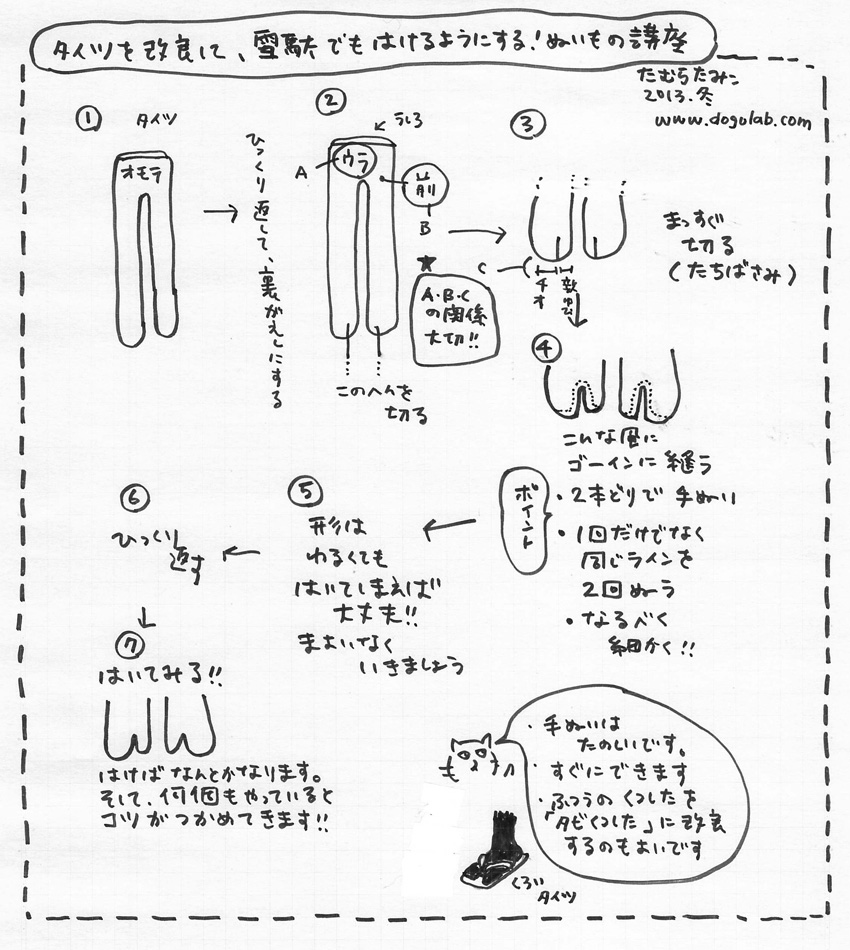 タイツを改良して、雪駄でもはけるようにする！ぬいもの講座
たむらたみこ
2013.冬
www.dogolab.com
①
タイツ
オモテ
ひっくり返して、裏がえしにする
②
うしろ
A
ウラ
前
B
★
A・B・C
の関係
大切!!
このへんを
切る
③
C
チオ
まっすぐ
切る
（たちばさみ）
④
こんな風に
ゴーインに縫う
ポイント
・2本どりで手ぬい
・1回だけでなく
同じラインを
2回ぬう
・なるべく
細かく!!
⑤
形は
わるくても
はいてしまえば
大丈夫!!
まよいなく
いきましょう
⑥
ひっくり
返す
⑦
はいてみる!!
はけばなんとかなります。
そして、何個もやっていると
コツがつかめてきます!!
・手ぬいは
たのしいです。
・すぐにできます
・ふつうのくつしたを
「タビくつした」に改良
するのもよいです
くろい
タイツ